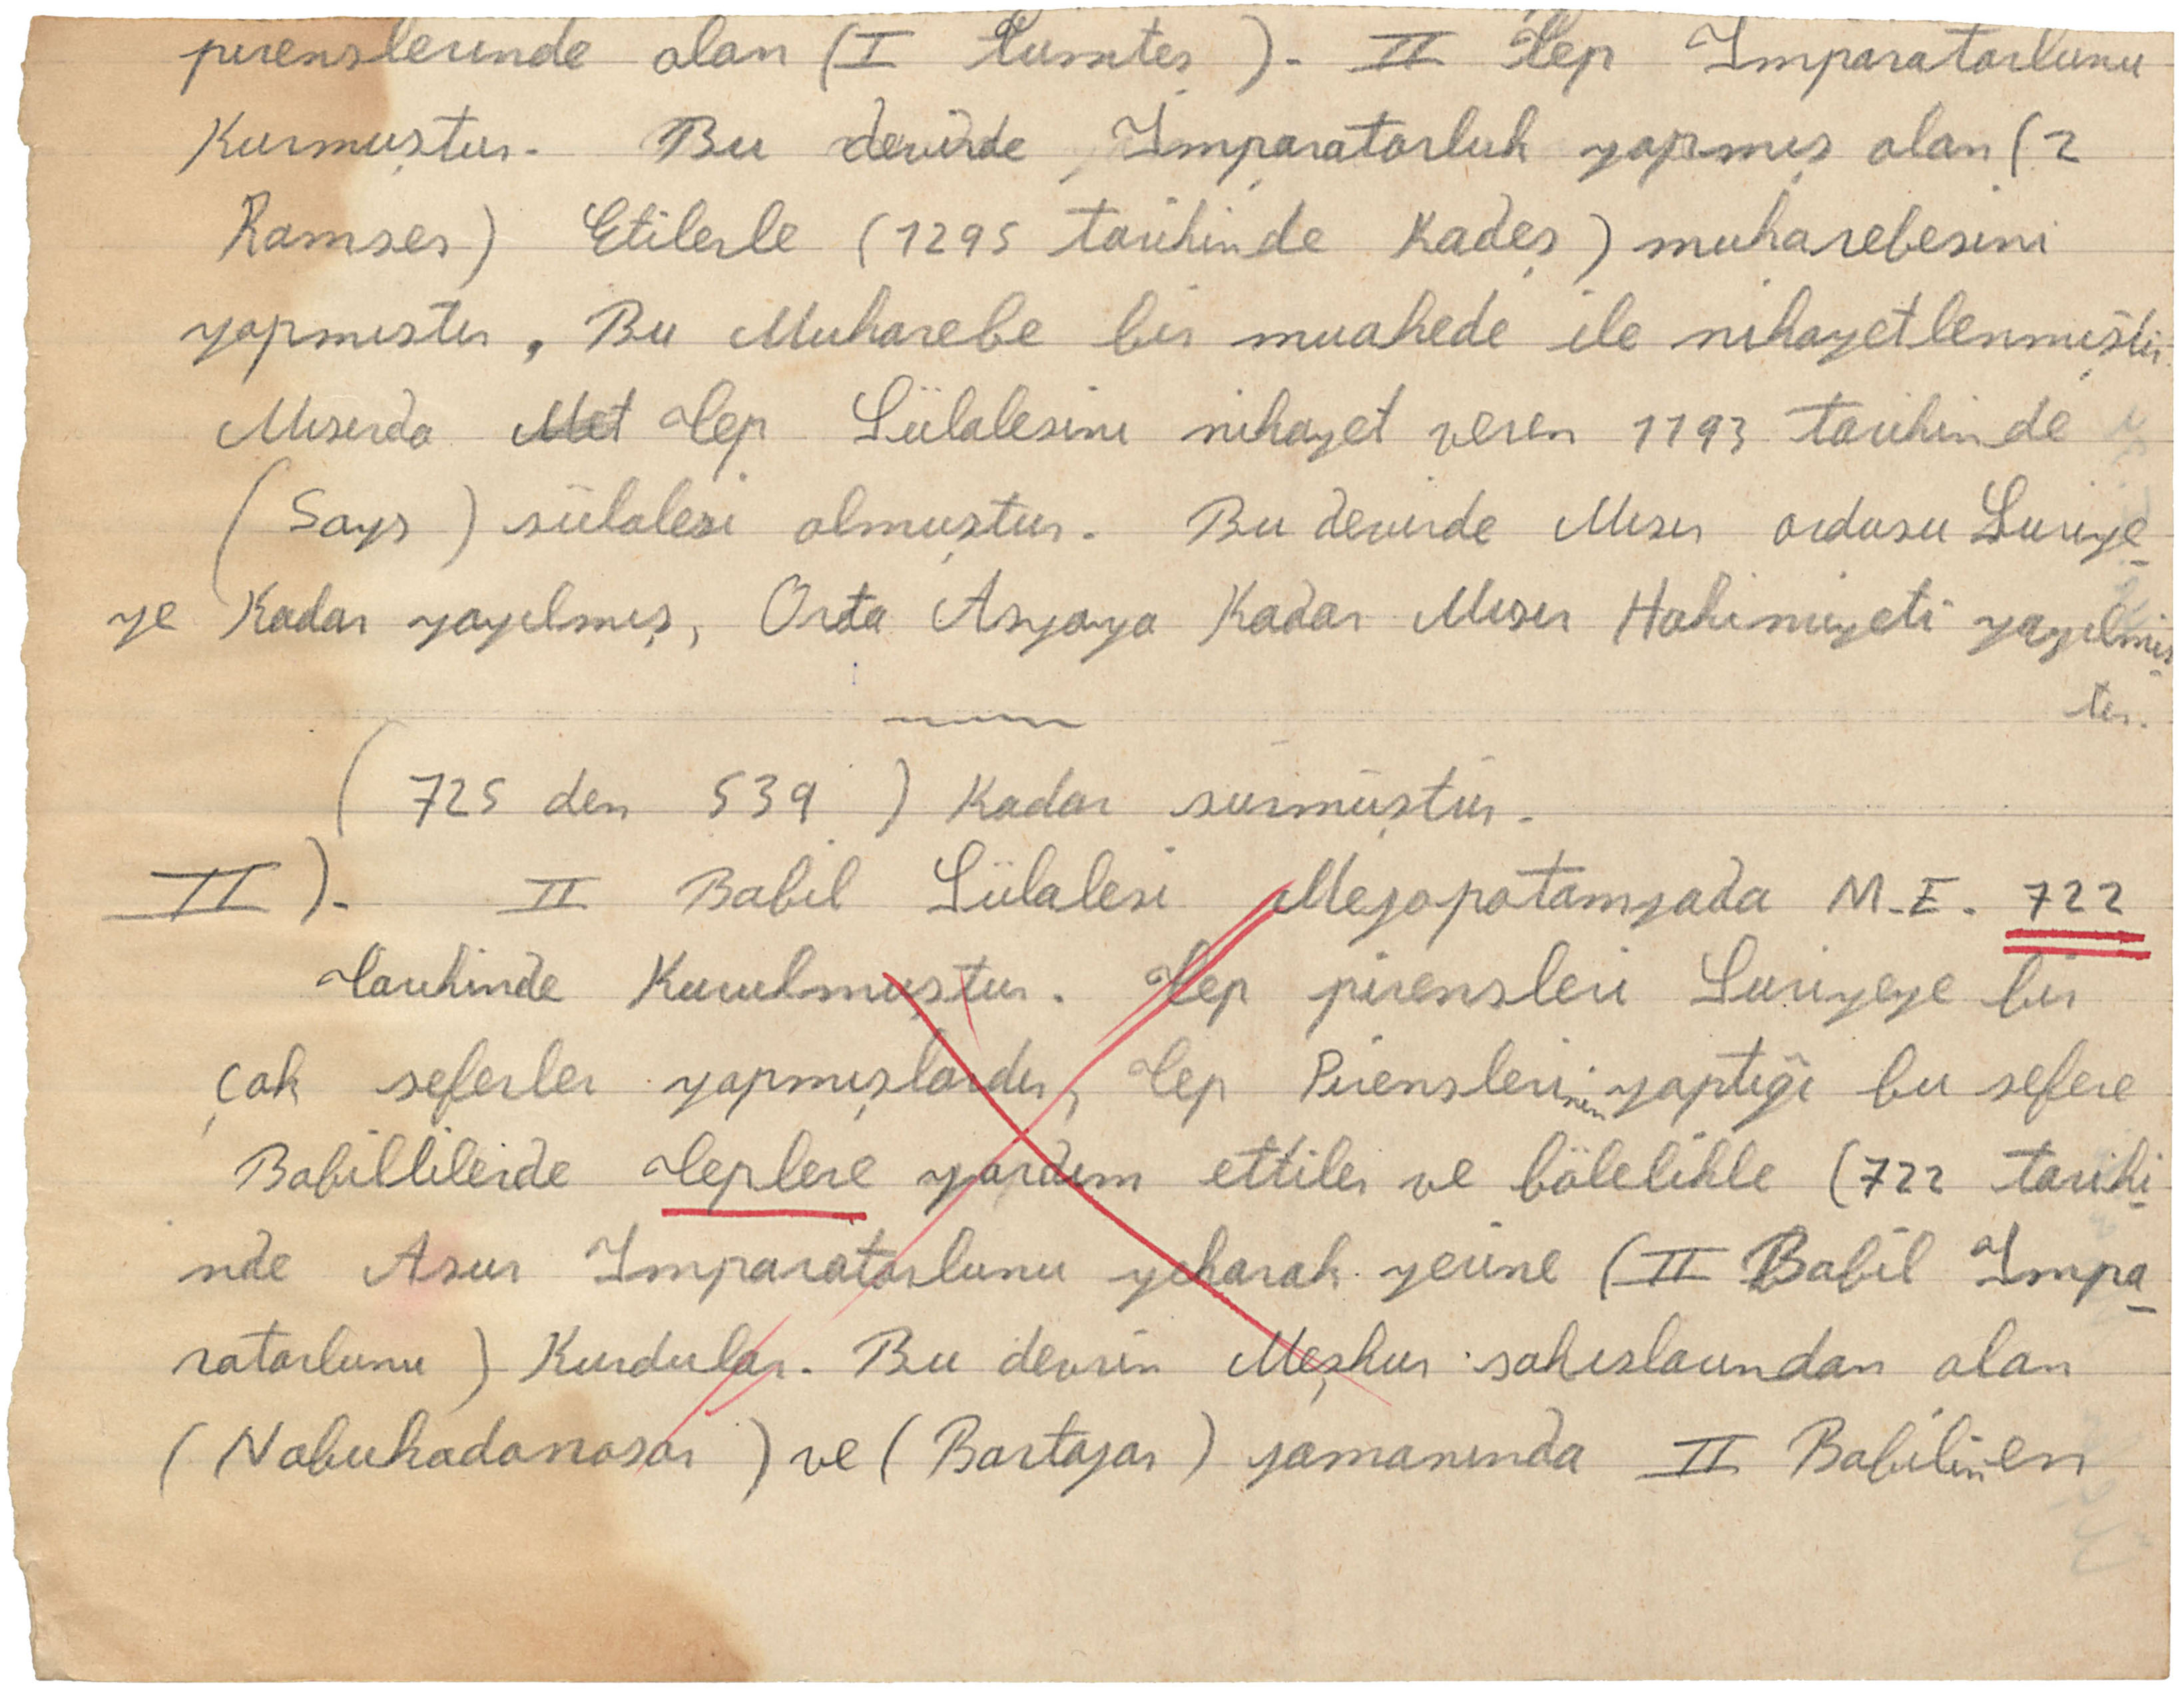 pirenslerinde olan (I Tumtes ). II Tep Imparatorlunu
Kurmuştur. Bu devirde Imparatorluk yapmış olan (2
Ramses) Etilerle (1295 tarihinde Kadeş) muharebesini
yapmıstır, Bu Muharebe bir muahede ile nihayetlenmiştir.
Mısırda Met Tep Sülalesini nihayet veren 1193 tarihinde
(Says) sülalesi olmuştur. Bu devirde Mısır ordusu Suriye-
ye Kadar yayılmış, Orta Asyaya Kadar Mısır Hakimiyeti yayılmış
tır.
(725 den 539 ) Kadar sürmüştür.
II ). II Babil Sülalesi Mezopotamyada M.E. 722
Tarihinde Kurulmuştur. Tep pirensleri Suriyeye bir
çok seferler yapmışlardır, Tep Pirenslerinin yaptığı bu sefere
Babillilerde Teplere yardım ettiler ve bölelikle (722 tarihi-
nde Asur Imparatorlunu yıkarak yerine (II Babil Impa-
ratorlunu ) Kurdular. Bu devrin Meşhur sahıslarından olan
(Nabukadonosor ) ve (Bartazar ) zamanında II Babilin en